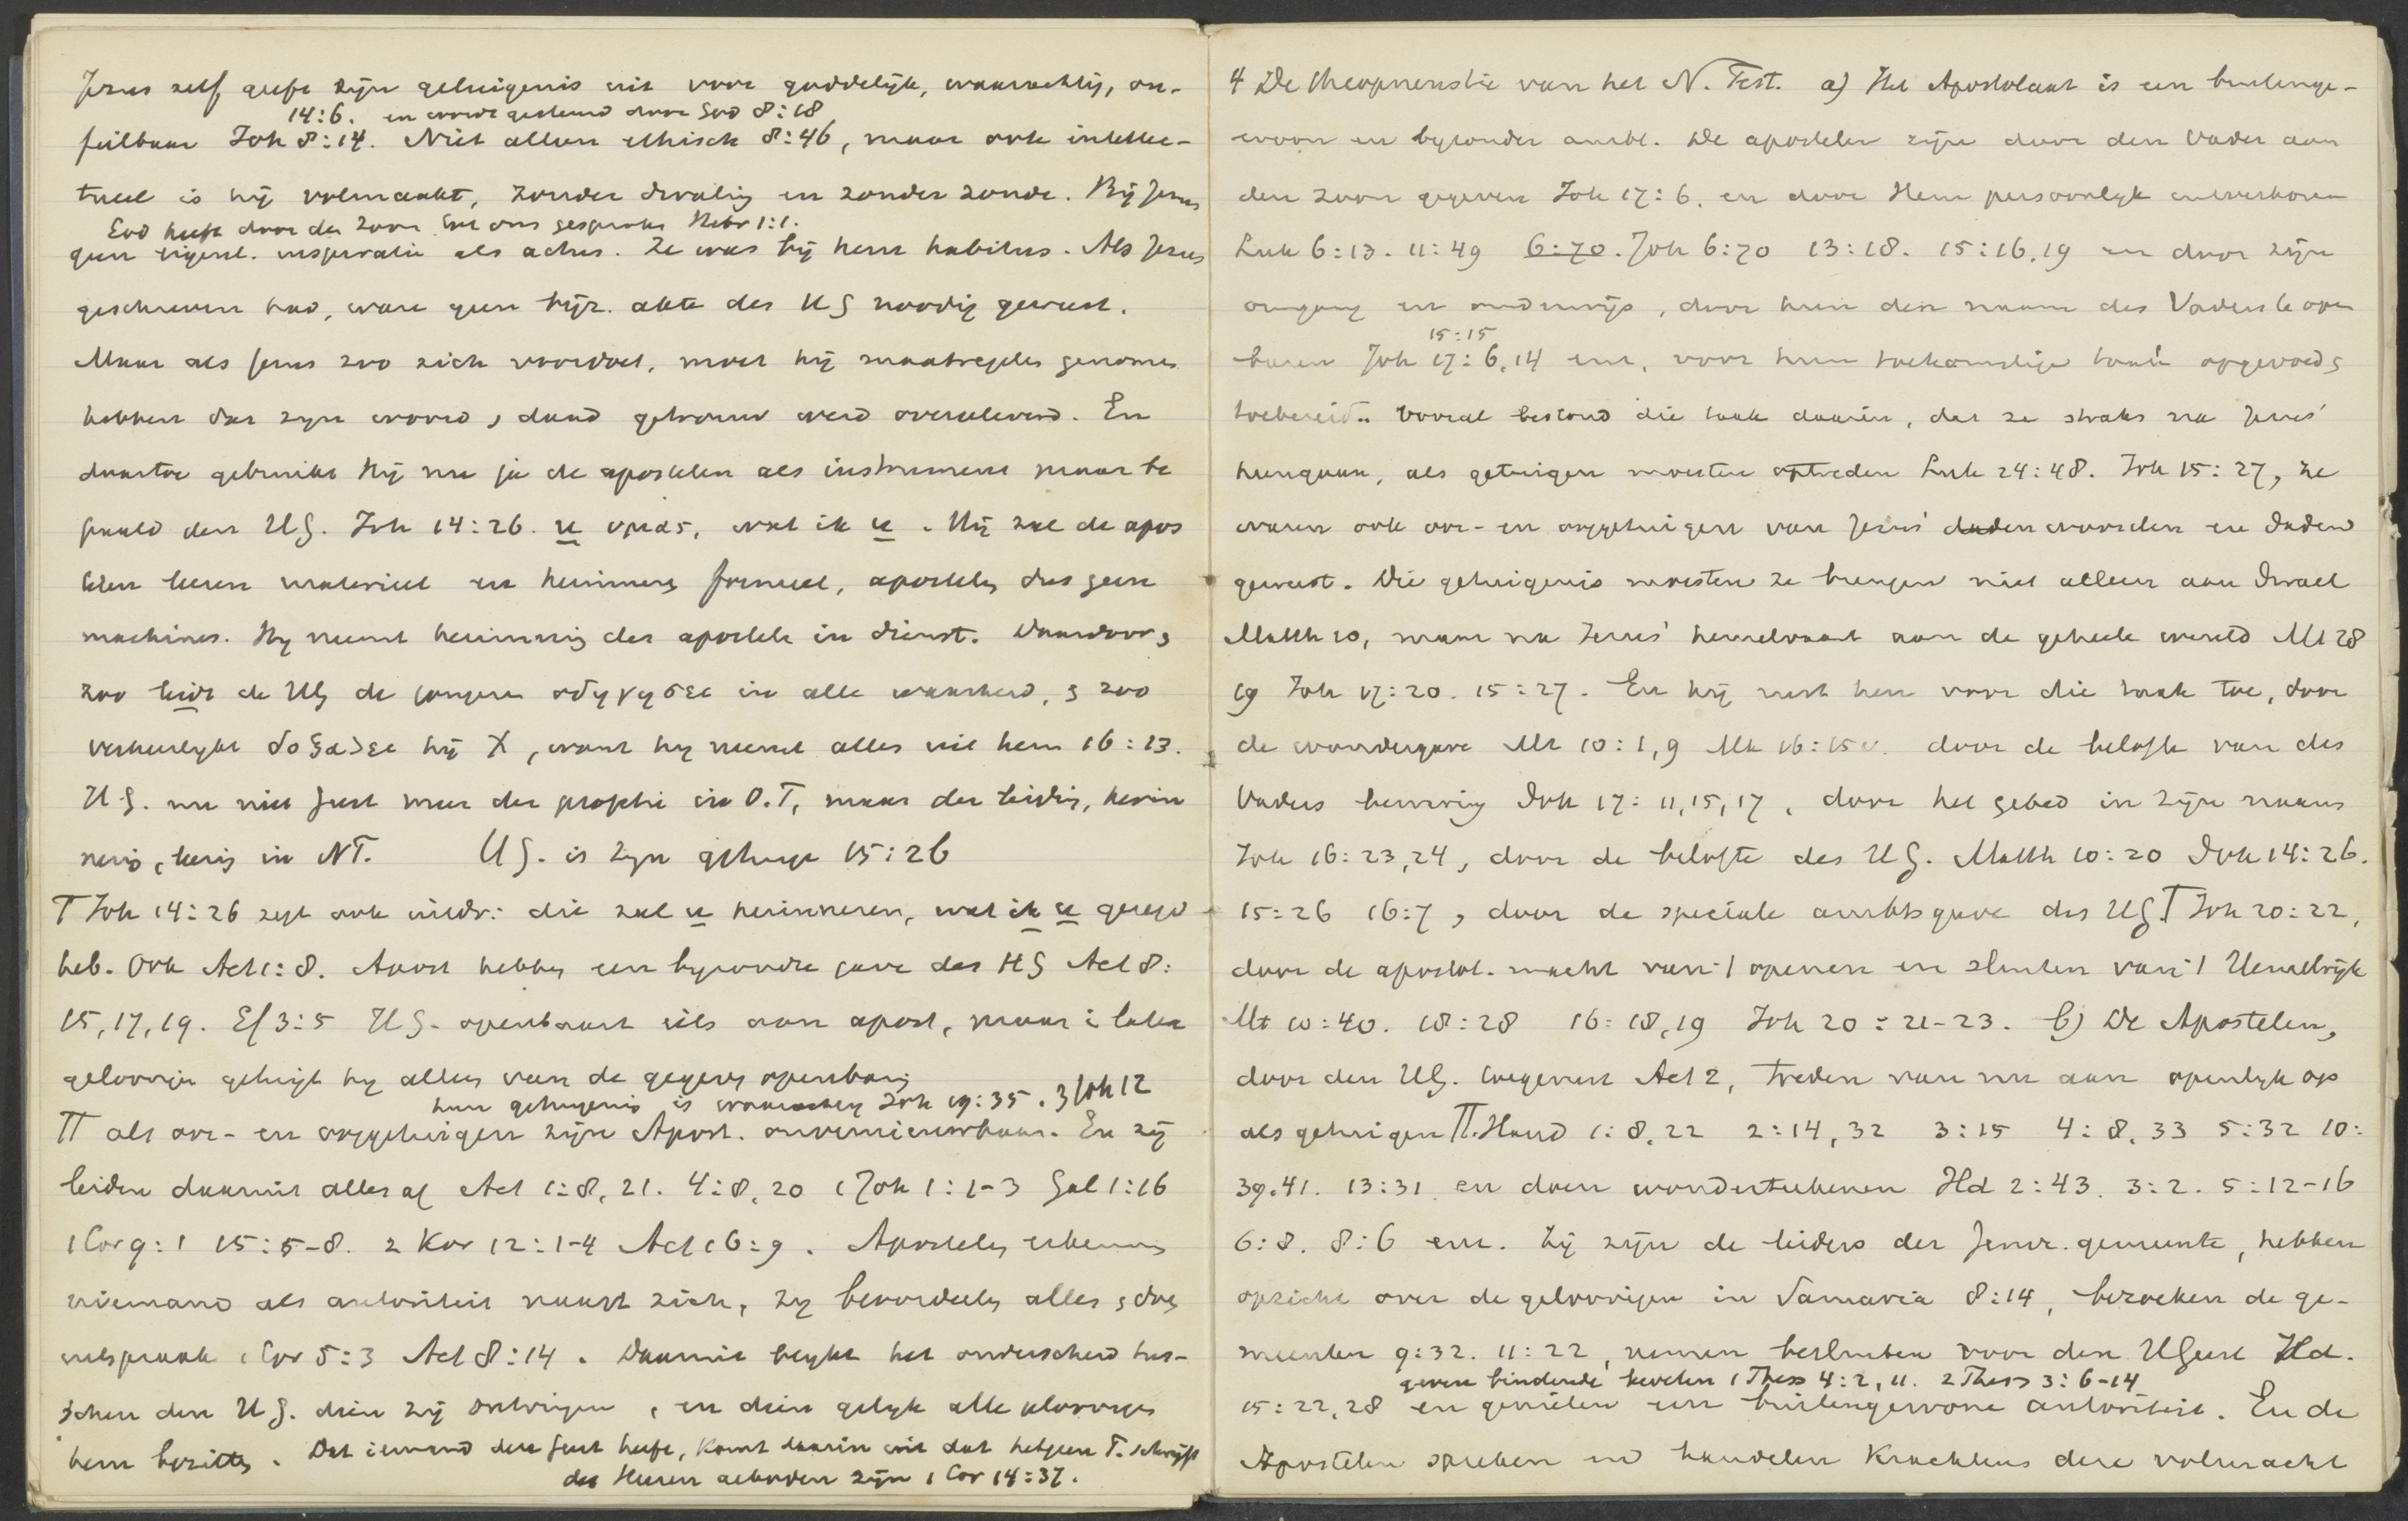 Jezus zelf geeft zijn getuigenis uit voor goddelijk, waarachtig, on-
14:6. en wordt gesteund door God 8:18
feilbaar Joh 8:14. Niet alleen ethisch 8:46, maar ook intellec-
tueel is hij volmaakt, zonder dwaling en zonder zonde. Bij Jezus
God heeft door den Zoon tot ons gesproken Hebr 1:1.
geen eigenl. inspiratie als actus. Ze was bij hem habitus. Als Jezus
geschreven had, ware geen bijz. akte des HG noodig geweest.
Maar als Jezus zoo zich voordoet, moet hij maatregelen genomen
hebben dat zijn woord, daad getrouw werd overgeleverd. En
daartoe gebruikt Hij nu ja de apostelen als instrument maar be
paald den HG. Joh 14:26. u υμας, wat ik u. Hij zal de apos
telen leeren materieel en herinneren formeel, apostelen dus geen
machines. Hij neemt herinnering der apostelen in dienst. Daardoor,
zoo leidt de HG de jongeren οδηγησει in alle waarheid, en zoo
verheerlijkt δοξασει hij X, want hij neemt alles uit hem 16:13.
H.G. nu niet Geest meer der prophetie in O.T, maar der leiding, herin
nering, leering in NT. HG. is zijn getuige 15:26
T Joh 14:26 zegt ook uitdr.: die zal u herinneren, wat ik u gezegd
heb. Ook Act 1:8. Apost hebben een bijzondre gave des HG Act 8:
15, 17, 19. Ef 3:5 HG. openbaart iets aan apost, maar in later
geloovigen getuigt hij alleen van de gegeven openbaring
hun getuigenis is waarachtig Joh 19:35. 3 Joh 12
TT als oor- en ooggetuigen zijn Apost. onvernieuwbaar. En zij
leiden daaruit alles af Act 1:8, 21. 4:8, 20 1 Joh 1:1-3 Gal 1:16
1 Cor 9:1 15:5-8. 2 Kor 12:1-4 Act 16:9. Apostelen erkennen
niemand als autoriteit naast zich, zij beoordeelen alles, doen
uitspraak 1 Cor 5:3 Act 8:14. Daaruit blijkt het onderscheid tus-
schen den HG. dien zij ontvingen, en dien gelijk alle geloovigen
hem bezitten. Dat iemand den Geest heeft, komt daarin uit dat hetgeen P. schrijft
des Heeren geboden zijn 1 Cor 14:37.
4 De theopneustie van het N. Test. a) Het Apostolaat is een buitenge-
woon en bijzonder ambt. De apostelen zijn door den Vader aan
den Zoon gegeven Joh 17:6, en door Hem persoonlijk uitverkoren
Luk 6:13. 11:49 6:70. Joh 6:70 13:18. 15:16, 19 en door zijn
omgang en onderwijs, door hun den naam des Vaders te open
15:15
baren Joh 17:6, 14 enz, voor hun toekomstige taak opgevoed,
toebereid. Vooral bestond die taak daarin, dat ze straks na Jezus'
heengaan, als getuigen moesten optreden Luk 24:48. Joh 15:27, ze
waren ook oor- en ooggetuigen van Jezus' daden woorden en daden
geweest. Die getuigenis moesten ze brengen niet alleen aan Israel
Matth 10, maar na Jezus' hemelvaart aan de geheele wereld Mt 28
19 Joh 17:20. 15:27. En hij rust hen voor die taak toe, door
de wondergave Mt 10:1, 9 Mk 16:15v. door de belofte van des
Vaders bewaring Joh 17:11, 15, 17, door het gebed in zijn naam
Joh 16:23, 24, door de belofte des HG. Matth 10:20 Joh 14:26.
15:26 16:7, door de speciale ambtsgave des HG T Joh 20:22,
door de apostol. macht van 't openen en sluiten van 't Hemelrijk
Mt 10:40. 18:28 16:18, 19 Joh 20:21-23. b) De Apostelen,
door den HG. toegerust Act 2, treden van nu aan openlijk op
als getuigen TT. Hand 1:8, 22 2:14, 32 3:15 4:8, 33 5:32 10:
39, 41. 13:31 en doen wonderteekenen Hd 2:43. 3:2. 5:12-16
6:8. 8:6 enz. Zij zijn de leiders der Jeruz. gemeente, hebben
opzicht over de geloovigen in Samaria 8:14, bezoeken de ge-
meenten 9:32. 11:22, nemen besluiten voor den HGeest Hd.
geven bindende bevelen 1 Thess 4:2, 11. 2 Thess 3:6-14
15:22, 28 en genieten een buitengewone autoriteit. En de
Apostelen spreken en handelen krachtens deze volmacht